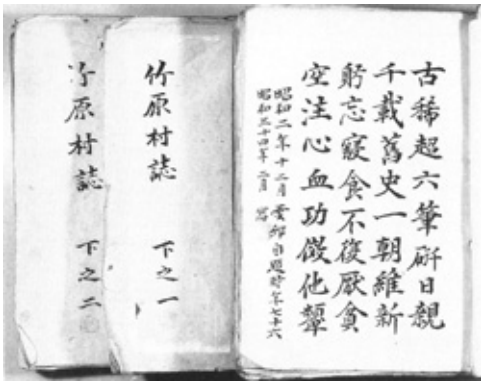 古稀超六筆硏日親
千載舊史一朝維新
躬忘寢食不復厭貧
空注心血功倣他顰
昭和二年十二月 自題時年七十六
昭和三十四年二月
竹原村誌 下之一
竹原村誌 下之二